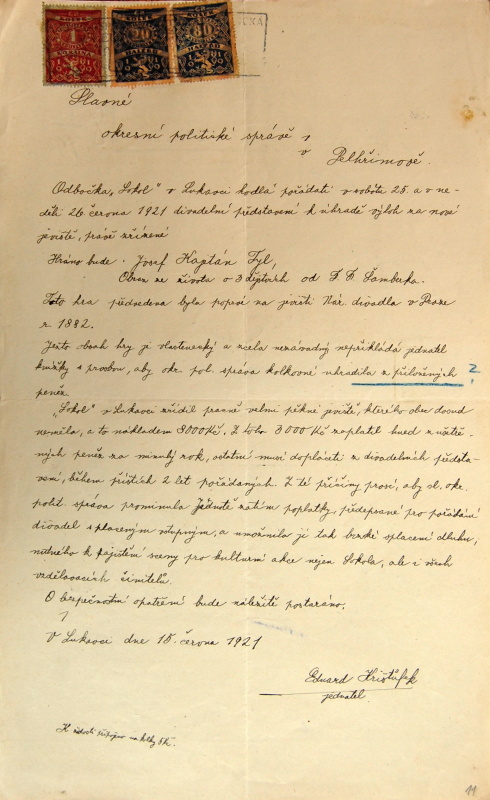 Slavné
okresní politické správě
v
Pelhřimově.
Odbočka „Sokol“ v Lukavci hodlá pořádati v sobotu 25. a v ne-
děli 26. června 1921 divadelní představení k úhradě výloh za nové
jeviště, právě zřízené
Hráno bude: Josef Kajetán Tyl,
Obraz ze života o 3 dějstvích od F. F. Šamberka.
Tato hra předvedena byla poprvé na jevišti Nár. divadla v Praze
r. 1882.
Jento obsah hry je vlastenecký a zcela nezávadný nepřikládá jednatel
knížky s prosbou, aby okr. pol. správa kolkovné uhradila z přiložených ?
peněz.
„Sokol“ v Lukavci zřídil pracně velmi pěkné jeviště, kterého obec dosud
neměla, a to nákladem 8000 Kč. Z toho 3000 Kč zaplatil hned z ušetře-
ných peněz za minulý rok, ostatní musí doplatiti z divadelních předsta-
vení, během příštích 2 let pořádaných. Z té příčiny prosí, aby sl. okr.
polit. správa prominula Jednotě zatím poplatky, předepsané pro pořádání
divadel s placeným vstupným, a umožnila jí tak brzké splacení dluhu,
nutného k zajištění sceny pro kulturní akce nejen Sokola, ale i všech
vzdělavacích činitelů.
O bezpečnostní opatření bude náležitě postaráno.
V Lukavci dne 15. června 1921
Eduard Krištůfek
jednatel.
K žádosti připojeno na kolky 5 Kč.
11
1
20
80